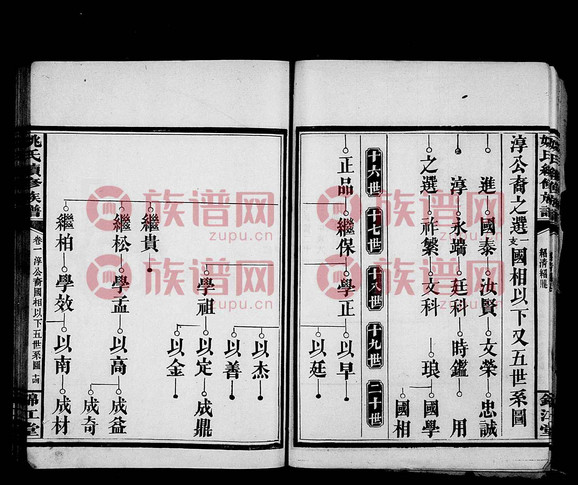 姚氏續修族譜
錦江堂
淳公裔之選一支國相以下又五世系圖
進 國泰 汝賢 文榮 忠誠
淳 永墻 廷科 時鑑 用
之選 祚繁 文科 琅 國學
國相
十六世 十七世 十八世 十九世 二十世
正品 繼保 學正 以早
以廷
以杰
以善
學祖 以定 成鼎
以金
繼貴
繼松 學孟 以高 成益
成奇
繼柏 學效 以南 成材
姚氏續修族譜
卷一 淳公裔國相以下五世系圖 十四
錦江堂
族谱网
zupu.cn
族谱网
zupu.cn
族谱网
zupu.cn
族谱网
zupu.cn
族谱网
zupu.cn
族谱网
zupu.cn